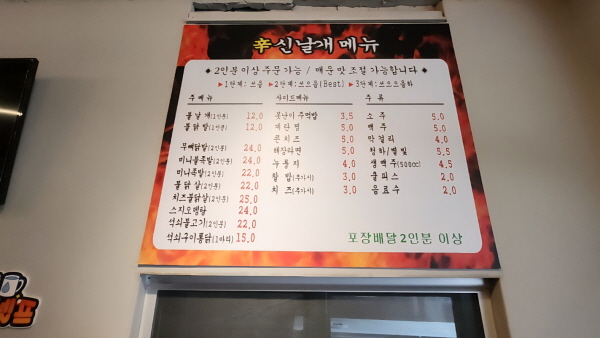 辛 신날개 메뉴
◆ 2인분 이상 주문 가능 / 매운 맛 조절 가능합니다 ◆
▶1단계:쓰읍 ▶2단계:쓰으읍(Best) ▶3단계:쓰으으읍하
주 메 뉴
불 날 개(1인분) 12.0
불 닭 발(1인분) 12.0
무뼈닭발(2인분) 24.0
미니불족발(2인분) 24.0
미니족발(2인분) 22.0
불 닭 살(2인분) 22.0
치즈불닭살(2인분) 25.0
스지오뎅탕 24.0
석쇠불고기(2인분) 22.0
석쇠구이통닭(1마리) 15.0
사이드메뉴
못난이 주먹밥 3.5
계 란 찜 5.0
콘 치 즈 5.0
해장라면 5.0
누 룽 지 4.0
활 밥(추가시) 3.0
치 즈(추가시) 3.0
주 류
소 주 5.0
맥 주 5.0
막 걸 리 4.0
청하/별빛 5.5
생 맥 주(500cc) 4.5
쿨 피 스 2.0
음 료 수 2.0
포장배달 2인분 이상